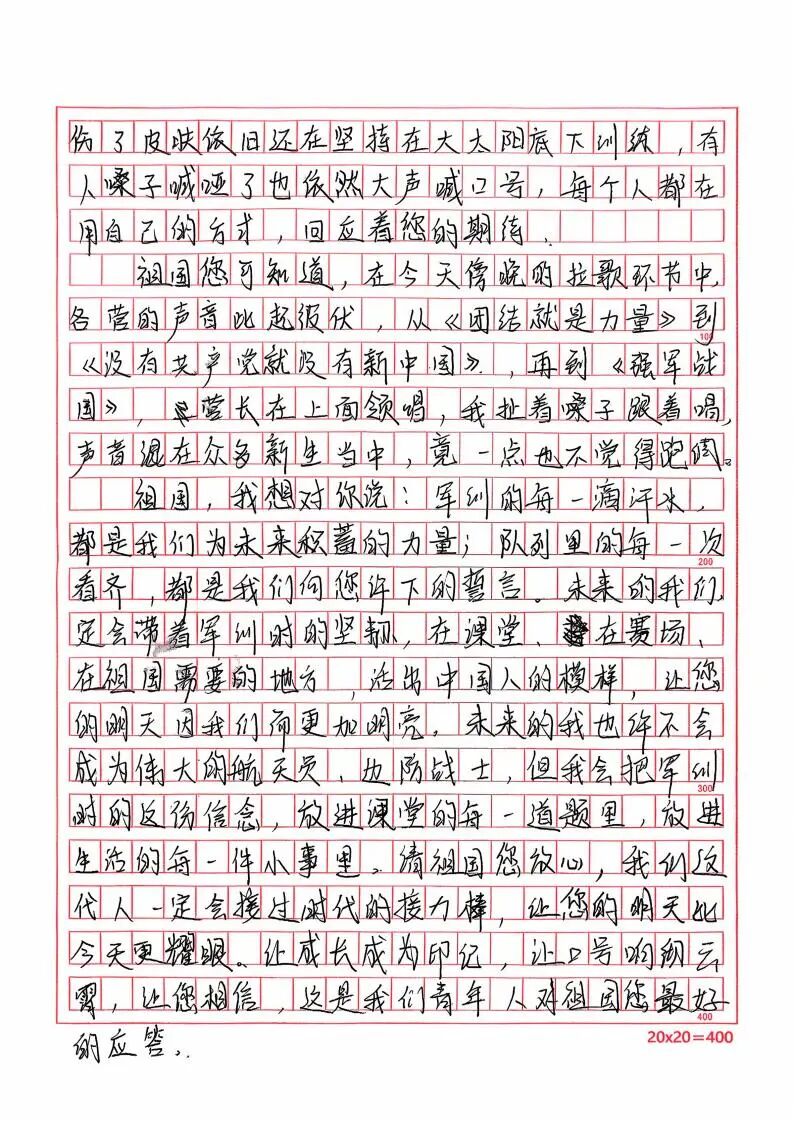 伤了皮肤依旧还在坚持在大太阳底下训练，有
人嗓子喊哑了也依然大声喊口号，每个人都在
用自己的方式，回应着您的期待。
祖国您可知道，在今天傍晚的拉歌环节中，
各营的声音此起彼伏，从《团结就是力量》到
100
《没有共产党就没有新中国》，再到《强军战
国》，营长在上面领唱，我扯着嗓子跟着唱，
声音混在众多新生当中，竟一点也不觉得跑调。
祖国，我想对你说：军训的每一滴汗水，
都是我们为未来积蓄的力量；队列里的每一次
200
看齐，都是我们向您许下的誓言。未来的我们，
定会带着军训时的坚韧，在课堂、在赛场、
在祖国需要的地方，活出中国人的模样，让您
的明天因我们而更加明亮。未来的我也许不会
成为伟大的航天员、边防战士，但我会把军训
300
时的信念，放进课堂的每一道题里，放进
生活的每一件小事里。请祖国您放心，我们这
代人一定会接过时代的接力棒，让您的明天比
今天更耀眼。让成长成为印记，让口号响彻云
霄，让您相信，这是我们青年人对祖国您最好
400
的应答。
20x20=400